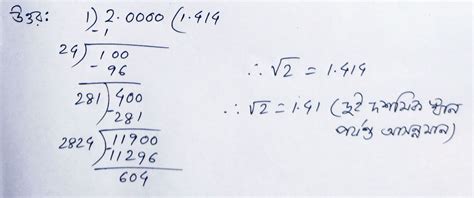 উত্তর: 1) 2.0000 (1.414
-1
24) 100
- 96
281) 400
-281
2824) 11900
-11296
604
∴ √2 = 1.414
∴ √2 = 1.41 (দুই দশমিক স্থান
পর্যন্ত আসন্নমান)